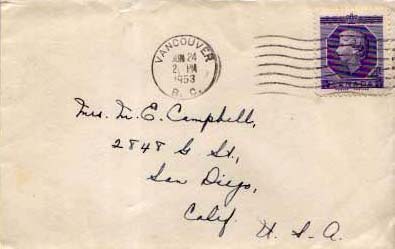 VANCOUVER
JUN 24
2 PM
1953
B. C.
Mrs. M. E. Campbell,
2848 G St.,
San Diego,
Calif. U. S. A.